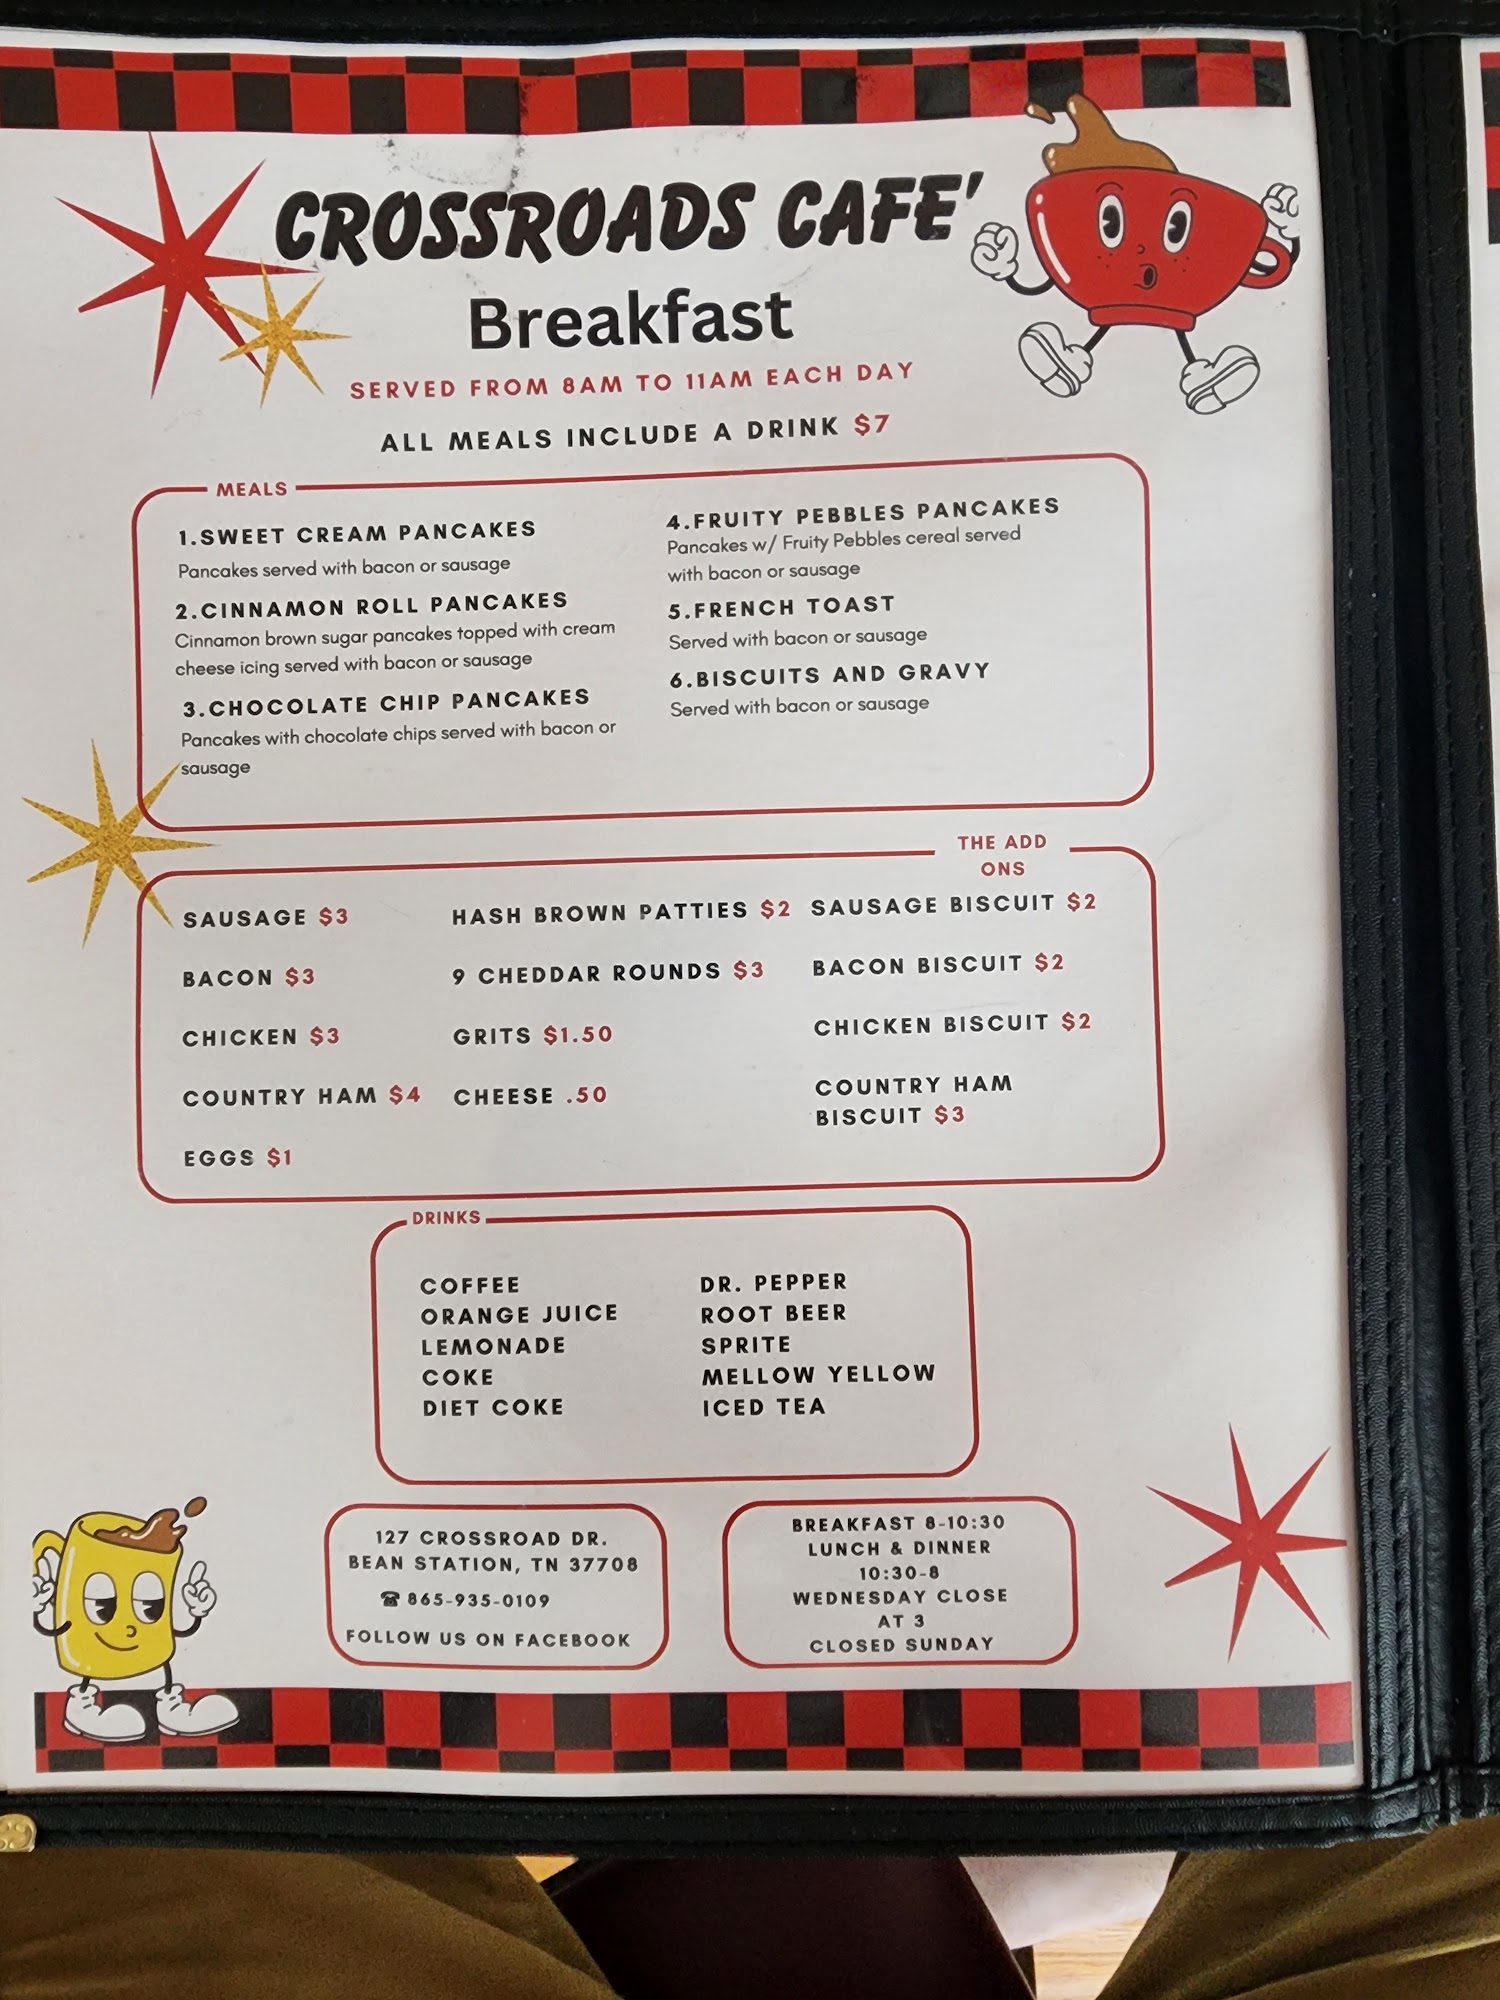 CROSSROADS CAFE'
Breakfast
SERVED FROM 8AM TO 11AM EACH DAY
ALL MEALS INCLUDE A DRINK $7
MEALS
1.SWEET CREAM PANCAKES
Pancakes served with bacon or sausage
2.CINNAMON ROLL PANCAKES
Cinnamon brown sugar pancakes topped with cream
cheese icing served with bacon or sausage
3.CHOCOLATE CHIP PANCAKES
Pancakes with chocolate chips served with bacon or
sausage
4.FRUITY PEBBLES PANCAKES
Pancakes w/ Fruity Pebbles cereal served
with bacon or sausage
5.FRENCH TOAST
Served with bacon or sausage
6.BISCUITS AND GRAVY
Served with bacon or sausage
THE ADD
ONS
SAUSAGE $3
BACON $3
CHICKEN $3
COUNTRY HAM $4
EGGS $1
HASH BROWN PATTIES $2
9 CHEDDAR ROUNDS $3
GRITS $1.50
CHEESE .50
SAUSAGE BISCUIT $2
BACON BISCUIT $2
CHICKEN BISCUIT $2
COUNTRY HAM
BISCUIT $3
DRINKS
COFFEE
ORANGE JUICE
LEMONADE
COKE
DIET COKE
DR. PEPPER
ROOT BEER
SPRITE
MELLOW YELLOW
ICED TEA
127 CROSSROAD DR.
BEAN STATION, TN 37708
☎ 865-935-0109
FOLLOW US ON FACEBOOK
BREAKFAST 8-10:30
LUNCH & DINNER
10:30-8
WEDNESDAY CLOSE
AT 3
CLOSED SUNDAY